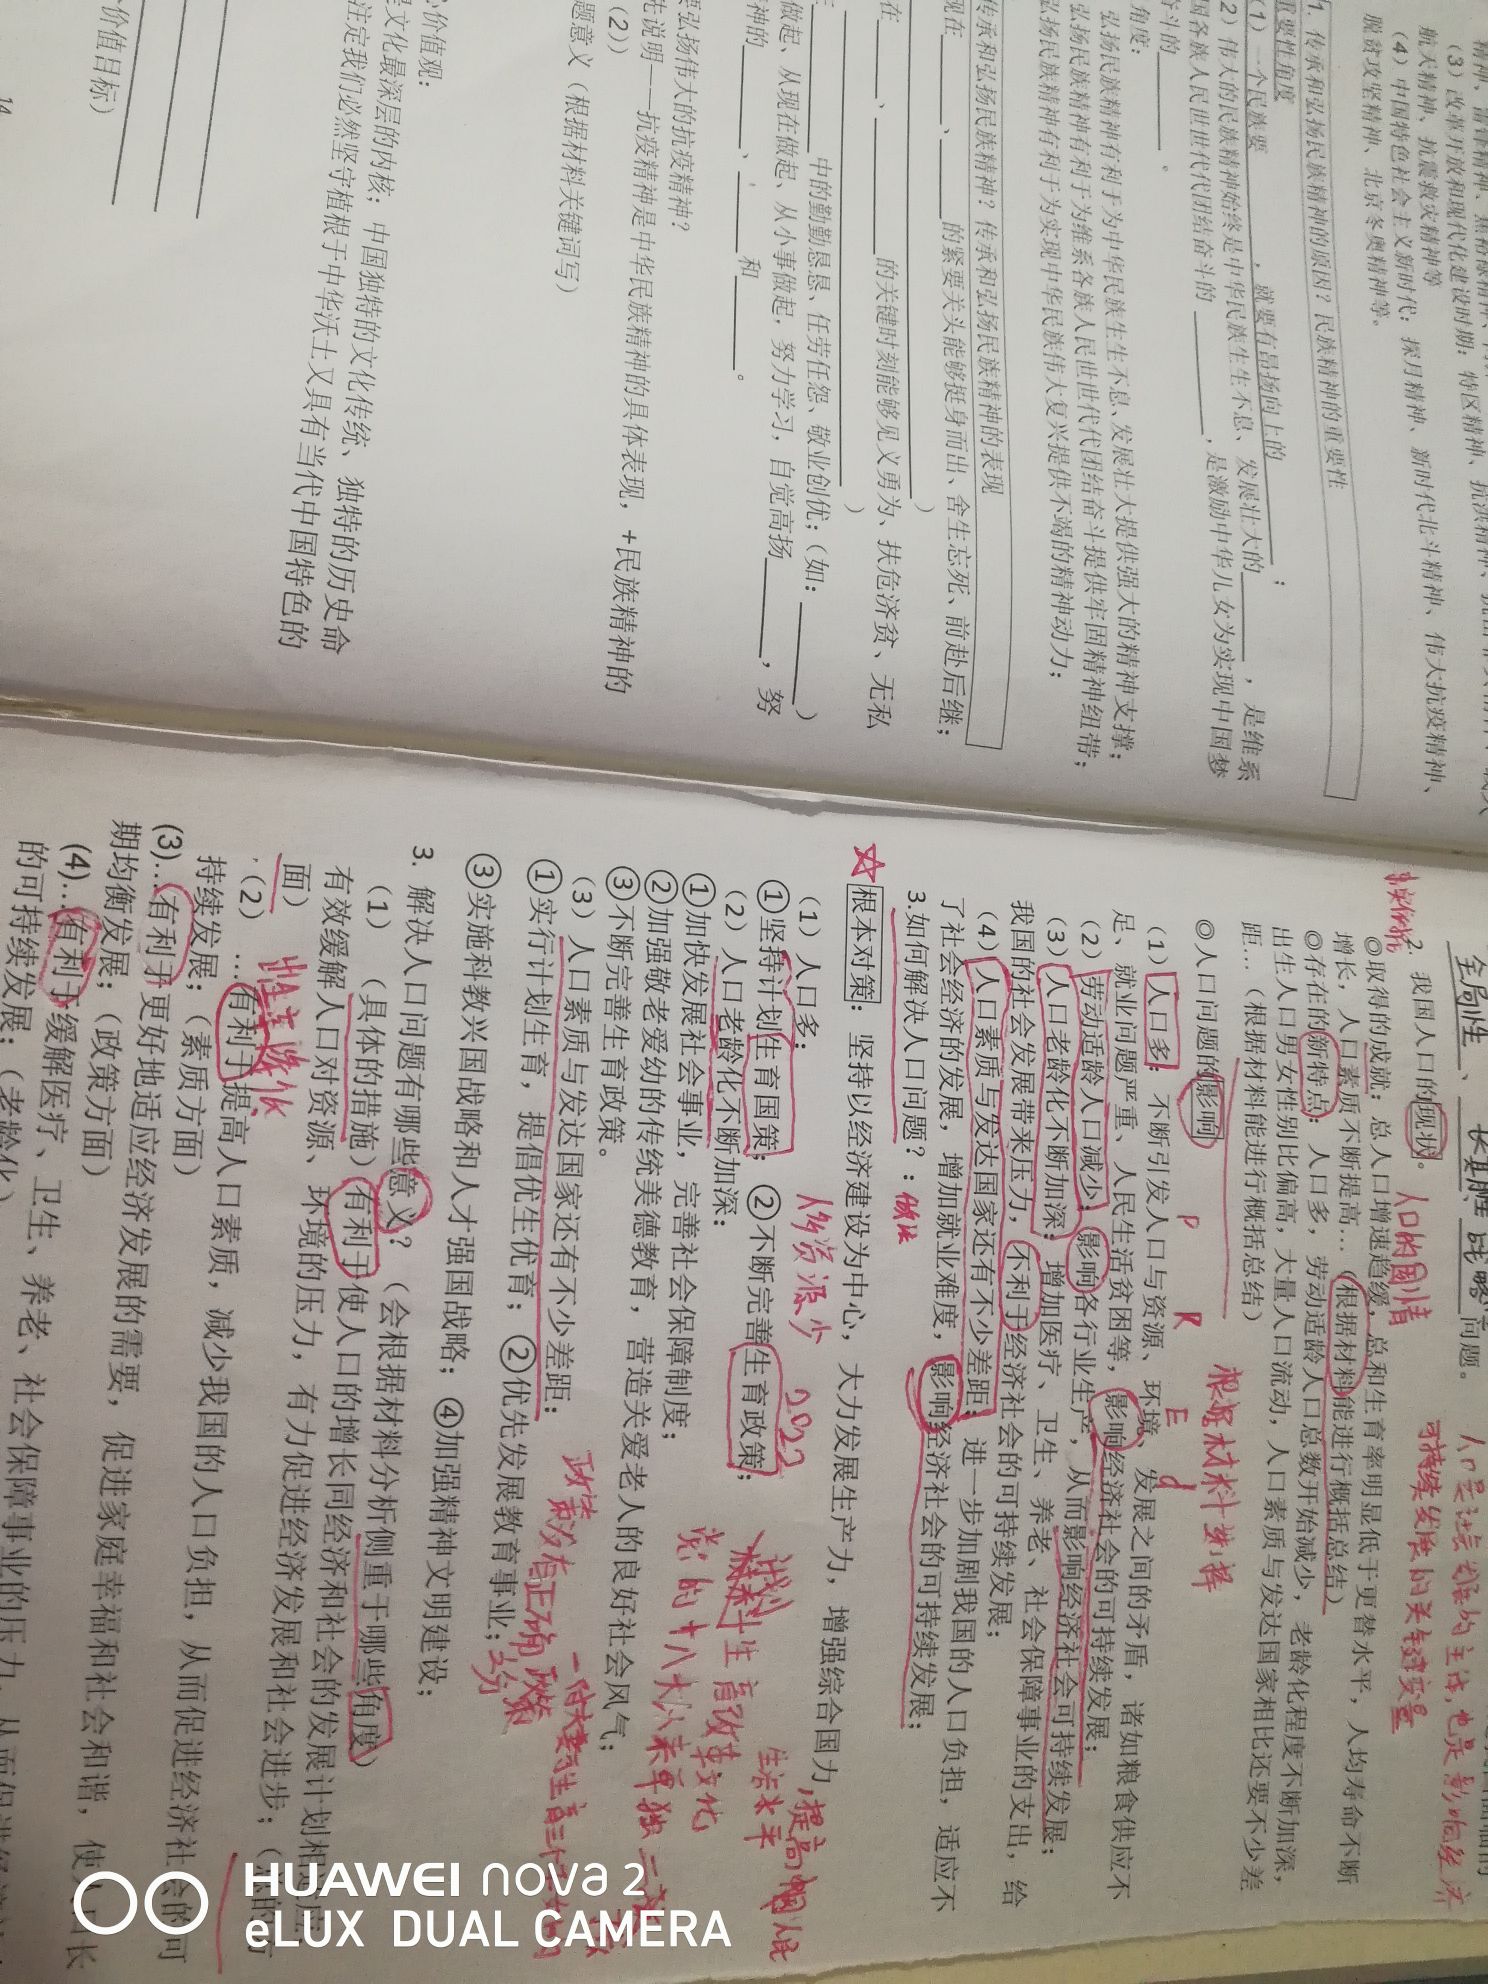 (3)改革开放和现代化建设时期：特区精神、抗洪精神、
航天精神、抗震救灾精神等
(4)中国特色社会主义新时代：探月精神、新时代北斗精神、伟大抗疫精神、
脱贫攻坚精神、北京冬奥精神等。
1.传承和弘扬民族精神的原因？民族精神的重要性
重要性角度
(1)一个民族要______，就要有昂扬向上的______；
2)伟大的民族精神始终是中华民族生生不息、发展壮大的______，是维系
国各族人民世世代代团结奋斗的______，是激励中华儿女为实现中国梦
奋斗的______。
角度：
弘扬民族精神有利于为中华民族生生不息、发展壮大提供强大的精神支撑；
弘扬民族精神有利于为维系各族人民世世代代团结奋斗提供牢固精神纽带；
弘扬民族精神有利于为实现中华民族伟大复兴提供不竭的精神动力；
传承和弘扬民族精神？传承和弘扬民族精神的表现
现在____、____的紧要关头能够挺身而出、舍生忘死、前赴后继；
)
在____、____的关键时刻能够见义勇为、扶危济贫、无私
)
____中的勤勤恳恳、任劳任怨、敬业创优；(如：____)
做起、从现在做起、从小事做起，努力学习，自觉高扬____，努
神的____、____和____。
要弘扬伟大的抗疫精神？
先说明——抗疫精神是中华民族精神的具体表现，+民族精神的
(2))
题意义（根据材料关键词写）
价值观：
是文化最深层的内核；中国独特的文化传统、独特的历史命
注定我们必然坚守植根于中华沃土又具有当代中国特色的
价值目标）
14
全局性、长期性 战略 问题。
人口是社会发展的主体，也是影响经济
可持续发展的关键变量
2.我国人口的现状。
人口的国情
◎取得的成就：总人口增速趋缓，总和生育率明显低于更替水平，人均寿命不断
增长，人口素质不断提高…（根据材料能进行概括总结）
◎存在的新特点：人口多，劳动适龄人口总数开始减少，老龄化程度不断加深，
出生人口男女性别比偏高，大量人口流动，人口素质与发达国家相比还要不少差
距…（根据材料能进行概括总结）
◎人口问题的影响
根据材料选择
P R E d
(1)人口多：不断引发人口与资源、环境、发展之间的矛盾，诸如粮食供应不
足、就业问题严重、人民生活贫困等，影响经济社会的可持续发展；
(2)劳动适龄人口减少：影响各行业生产，从而影响经济社会可持续发展；
(3)人口老龄化不断加深：增加医疗、卫生、养老、社会保障事业的支出，给
我国的社会发展带来压力，不利于经济社会的可持续发展；
(4)人口素质与发达国家还有不少差距：进一步加剧我国的人口负担，适应不
了社会经济的发展，增加就业难度，影响经济社会的可持续发展；
3.如何解决人口问题？：做法
根本对策：坚持以经济建设为中心，大力发展生产力，增强综合国力，提高人民
生活水平
(1)人口多：
人均资源少
2022
①坚持计划生育国策；②不断完善生育政策；
(2)人口老龄化不断加深：
①加快发展社会事业，完善社会保障制度；
②加强敬老爱幼的传统美德教育，营造关爱老人的良好社会风气；
③不断完善生育政策。
(3)人口素质与发达国家还有不少差距：
①实行计划生育，提倡优生优育；②优先发展教育事业；
③实施科教兴国战略和人才强国战略；④加强精神文明建设；
3.解决人口问题有哪些意义？（会根据材料分析侧重于哪些角度）
(1)（具体的措施）有利于使人口的增长同经济和社会的发展计划相适应
有效缓解人口对资源、环境的压力，有力促进经济发展和社会进步；
面）
(2)…有利于提高人口素质，减少我国的人口负担，从而促进经济社会的可
持续发展；（素质方面）
(3)…有利于更好地适应经济发展的需要，促进家庭幸福和社会和谐，使人口长
期均衡发展；（政策方面）
(4)…有利于缓解医疗、卫生、养老、社会保障事业的压力，从而促进经
的可持续发展；（老龄化）
HUAWEI nova 2
eLUX DUAL CAMERA